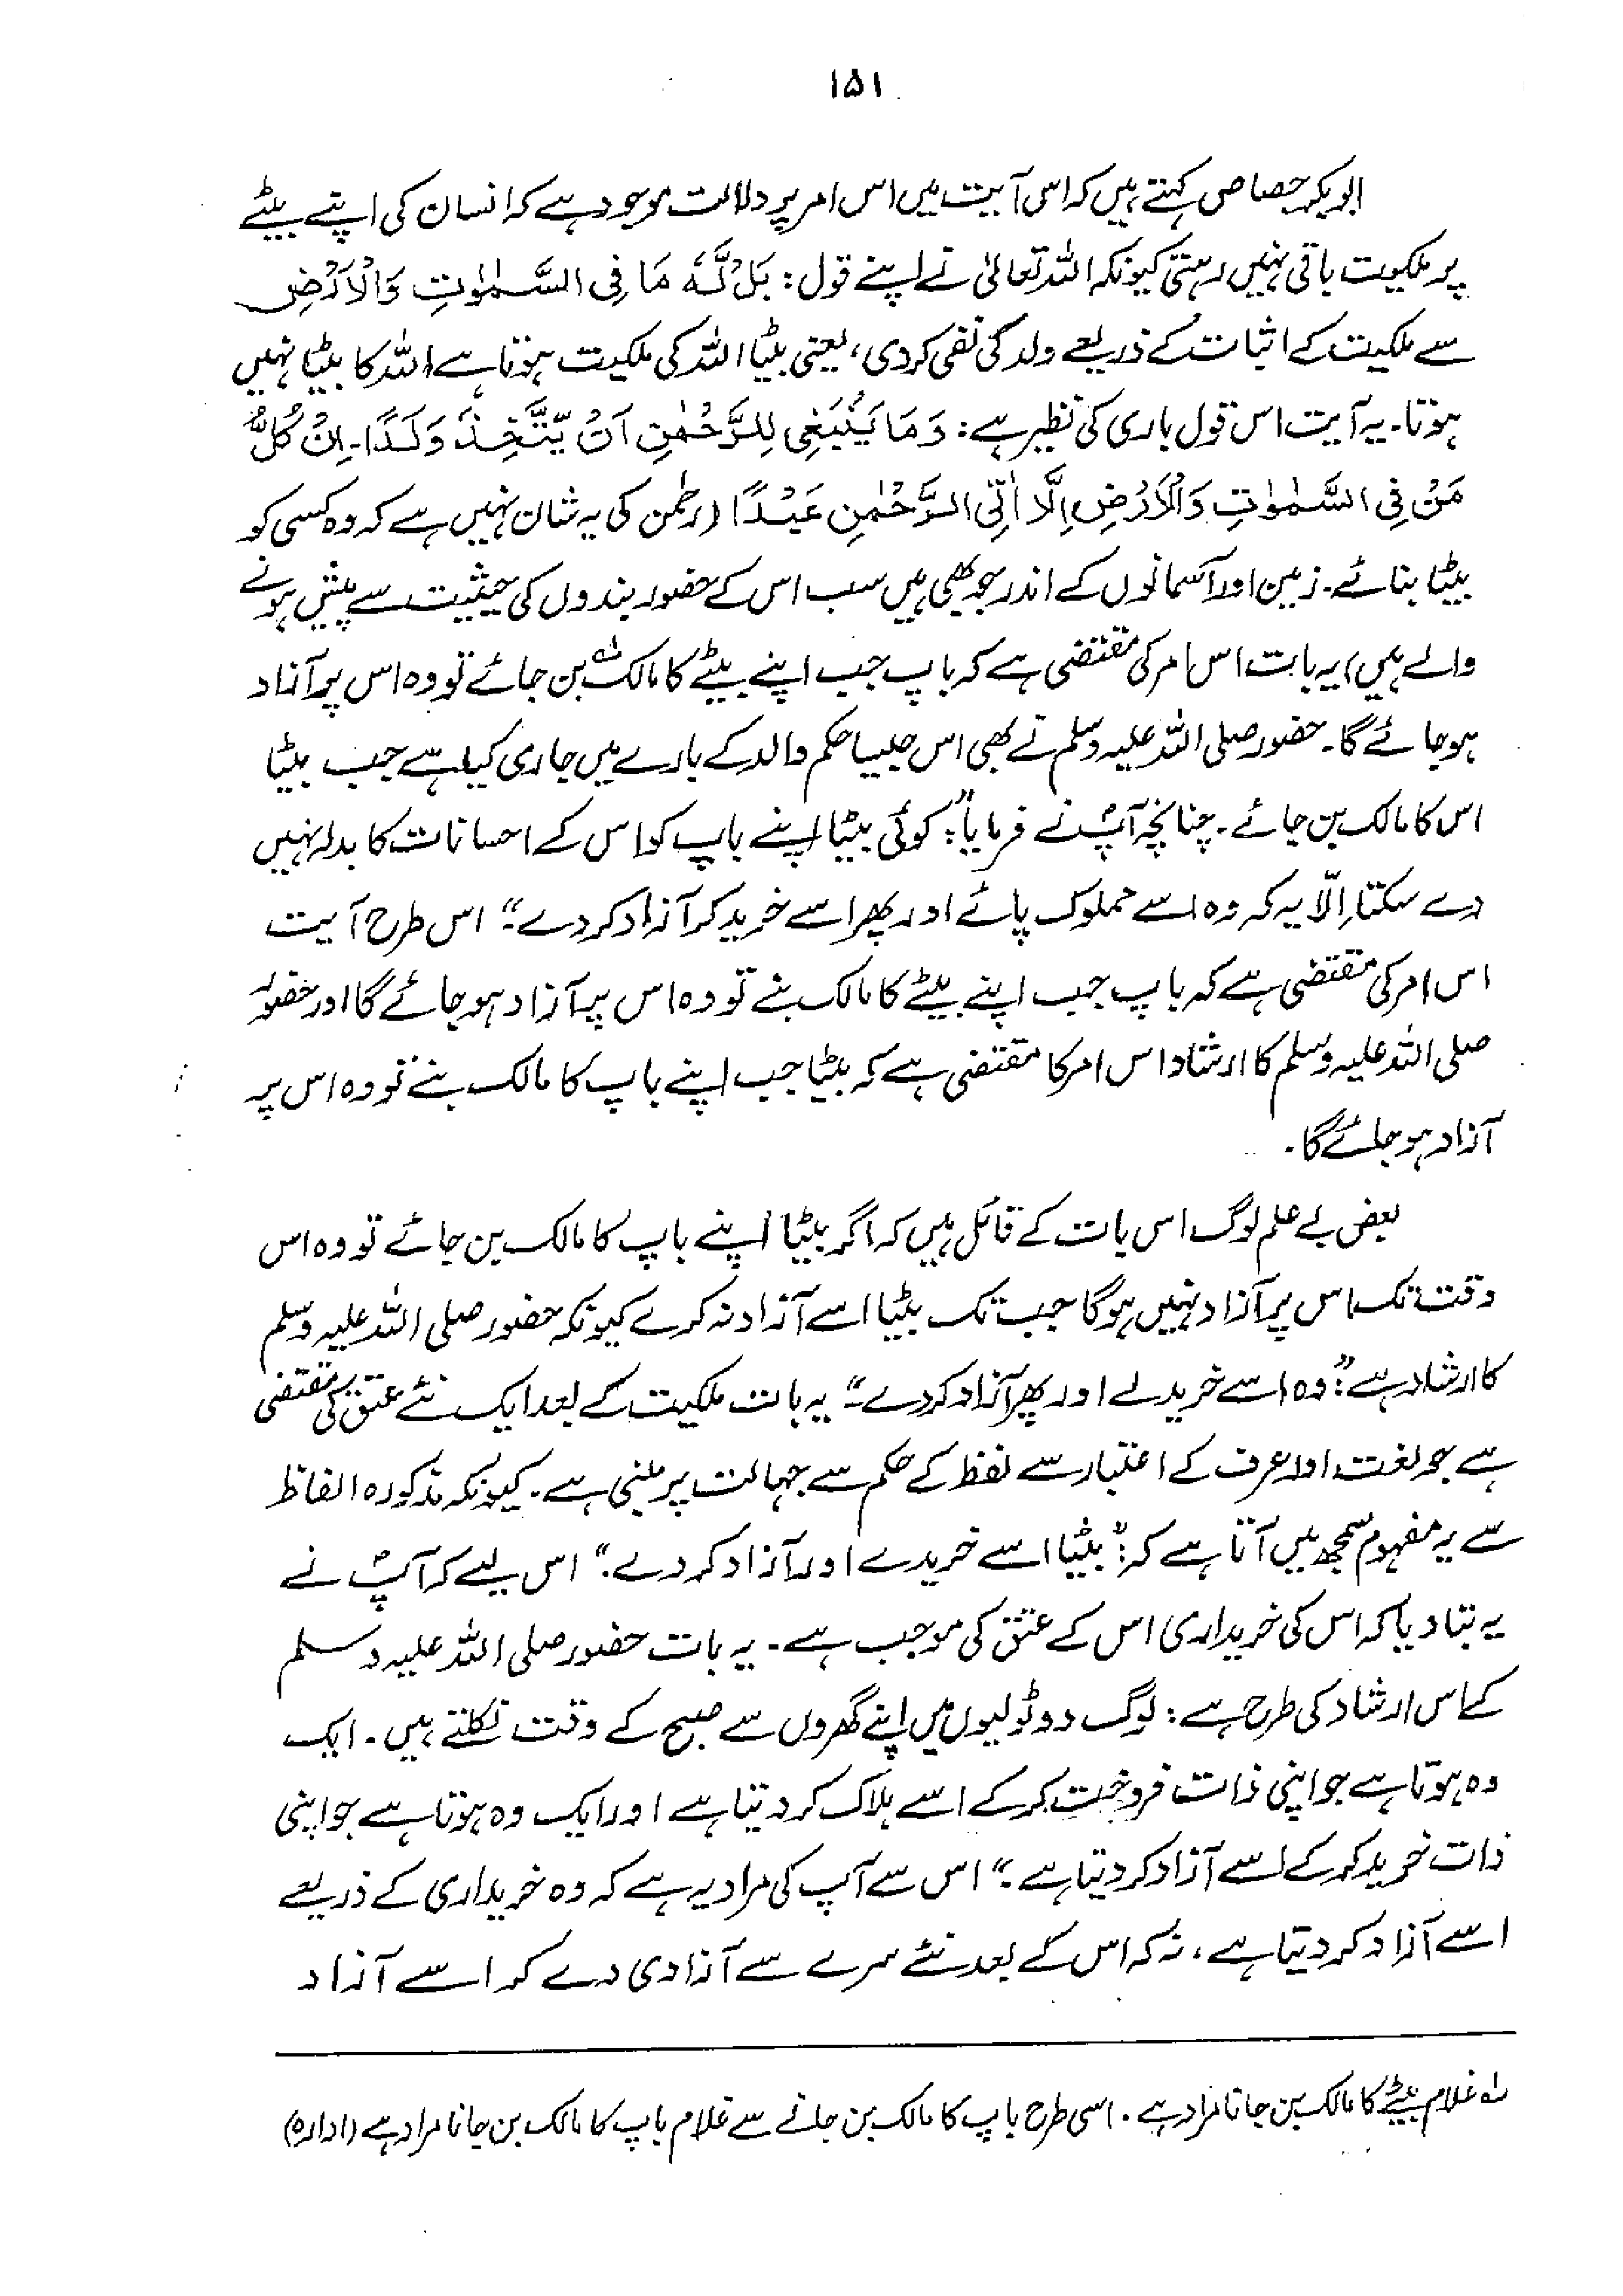 ۱۵۱
ابوبکر جصاص کہتے ہیں کہ اس آیت میں اس امر پر دلالت موجود ہے کہ انسان کی اپنے بیٹے
پر ملکیت باقی نہیں رہتی کیونکہ اللہ تعالیٰ نے اپنے قول: بَلْ لَّہٗ مَا فِی السَّمٰوٰتِ وَالْاَرْضِ
سے ملکیت کے اثبات کے ذریعے ولد کی نفی کر دی، یعنی بیٹا اللہ کی ملکیت ہوتا ہے اللہ کا بیٹا نہیں
ہوتا۔ یہ آیت اس قول باری کی نظیر ہے: وَمَا یَنْۢبَغِی لِلرَّحْمٰنِ اَنْ یَّتَّخِذَ وَلَدًا۔ اِنْ کُلُّ
مَنْ فِی السَّمٰوٰتِ وَالْاَرْضِ اِلَّا اٰتِی الرَّحْمٰنِ عَبْدًا (رحمٰن کی یہ شان نہیں ہے کہ وہ کسی کو
بیٹا بنائے۔ زمین اور آسمانوں کے اندر جو بھی ہیں سب اس کے حضور بندوں کی حیثیت سے پیش ہونے
والے ہیں) یہ بات اس امر کی مقتضی ہے کہ باپ جب اپنے بیٹے کا مالک لہ بن جائے تو وہ اس پر آزاد
ہو جائے گا۔ حضور صلی اللہ علیہ وسلم نے بھی اس جیسا حکم والد کے بارے میں جاری کیا ہے جب بیٹا
اس کا مالک بن جائے۔ چنانچہ آپؐ نے فرمایا: "کوئی بیٹا اپنے باپ کو اس کے احسانات کا بدلہ نہیں
دے سکتا اِلّا یہ کہ وہ اسے مملوک پائے اور پھر اسے خرید کر آزاد کر دے۔" اس طرح آیت
اس امر کی مقتضی ہے کہ باپ جب اپنے بیٹے کا مالک بنے تو وہ اس پر آزاد ہو جائے گا اور حضور
صلی اللہ علیہ وسلم کا ارشاد اس امر کا مقتضی ہے کہ بیٹا جب اپنے باپ کا مالک بنے تو وہ اس پر
آزاد ہو جائے گا۔
بعض بے علم لوگ اس بات کے قائل ہیں کہ اگر بیٹا اپنے باپ کا مالک بن جائے تو وہ اس
وقت تک اس پر آزاد نہیں ہوگا جب تک بیٹا اسے آزاد نہ کرے کیونکہ حضور صلی اللہ علیہ وسلم
کا ارشاد ہے: "وہ اسے خریدلے اور پھر آزاد کر دے۔" یہ بات ملکیت کے بعد ایک نئے عتق کی مقتضی
ہے جو لغت اور عرف کے اعتبار سے لفظ کے حکم سے جہالت پر مبنی ہے۔ کیونکہ مذکورہ الفاظ
سے یہ مفہوم سمجھ میں آتا ہے کہ: "بیٹا اسے خریدے اور آزاد کر دے۔" اس لیے کہ آپؐ نے
یہ بتا دیا کہ اس کی خریداری اس کے عتق کی موجب ہے۔ یہ بات حضور صلی اللہ علیہ وسلم
کے اس ارشاد کی طرح ہے: لوگ دو ٹولیوں میں اپنے گھروں سے صبح کے وقت نکلتے ہیں۔ ایک
وہ ہوتا ہے جو اپنی ذات فروخت کر کے اسے ہلاک کر دیتا ہے اور ایک وہ ہوتا ہے جو اپنی
ذات خرید کر کے اسے آزاد کر دیتا ہے۔" اس سے آپ کی مراد یہ ہے کہ وہ خریداری کے ذریعے
اسے آزاد کر دیتا ہے، نہ کہ اس کے بعد نئے سرے سے آزادی دے کر اسے آزاد
لہ غلام بیٹے کا مالک بن جانا مراد ہے۔ اسی طرح باپ کا مالک بن جانے سے غلام باپ کا مالک بن جانا مراد ہے (ادارہ)